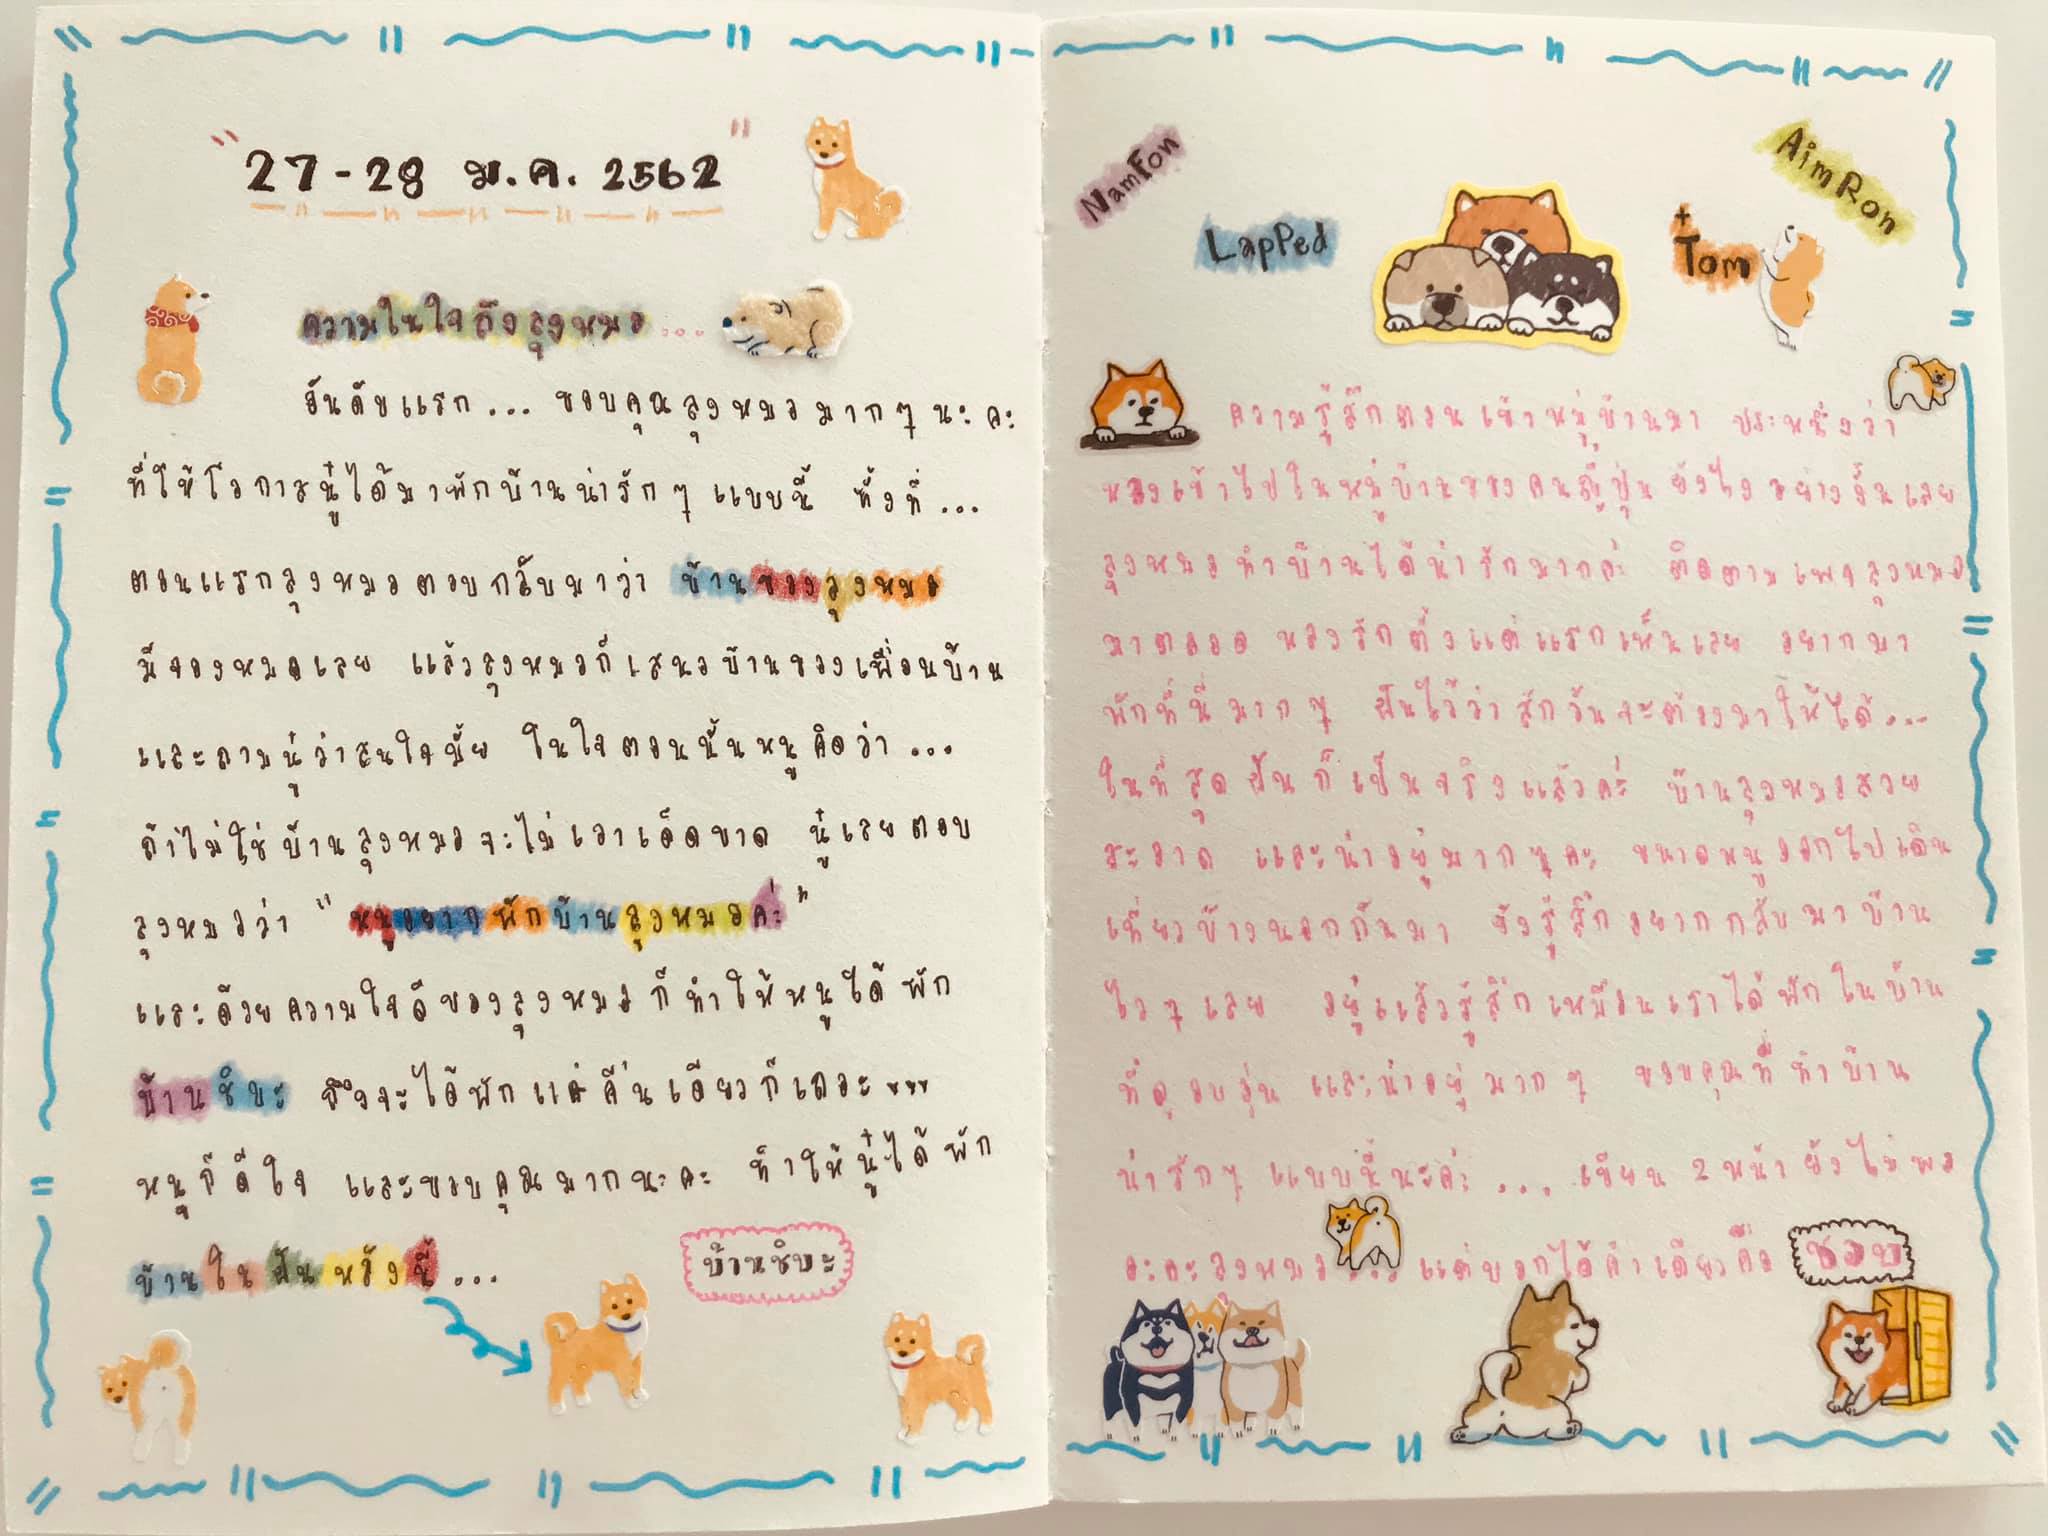 "27-28 ม.ค. 2562"
ความในใจถึงลุงหมอ...
อันดับแรก... ขอบคุณลุงหมอมากๆนะคะ
ที่ให้โอกาสนู๋ได้มาพักบ้านน่ารักๆแบบนี้ ทั้งที่...
ตอนแรกลุงหมอตอบกลับมาว่า บ้านของลุงหมอ
มีจองหมดเลย แล้วลุงหมอก็เสนอบ้านของเพื่อนบ้าน
และถามนู๋ว่าสนใจมั้ย ในใจตอนนั้นหนูคิดว่า...
ถ้าไม่ใช่บ้านลุงหมอจะไม่เอาเด็ดขาด นู๋เลยตอบ
ลุงหมอว่า "หนูอยากพักบ้านลุงหมอค่ะ"
และด้วยความใจดีของลุงหมอก็ทำให้หนูได้พัก
บ้านชิบะ ถึงจะได้พักแค่คืนเดียวก็เถอะ
หนูก็ดีใจ และขอบคุณมากนะคะ ที่ทำให้นู๋ได้พัก
บ้านในฝันหลังนี้...
บ้านชิบะ
NamFon
LapPed
+Tom
AimRon
ความรู้สึกตอนเข้าหมู่บ้านมา ประหนึ่งว่า
หลงเข้าไปในหมู่บ้านของคนญี่ปุ่น ยังไงอย่างงั้นเลย
ลุงหมอทำบ้านได้น่ารักมากค่ะ ติดตามเพจลุงหมอ
มาตลอด หลงรักตั้งแต่แรกเห็นเลย อยากมา
พักที่นี่มากๆ ฝันไว้ว่าสักวันจะต้องมาให้ได้...
ในที่สุดฝันก็เป็นจริงแล้วค่ะ บ้านลุงหมอสวย
สะอาด และน่าอยู่มากๆคะ ขนาดหนูออกไปเดิน
เที่ยวข้างนอกกันมา ยังรู้สึกอยากกลับมาบ้าน
ไวๆเลย อยู่แล้วรู้สึกเหมือนเราได้พักในบ้าน
ที่อบอุ่น และน่าอยู่มากๆ ขอบคุณที่ทำบ้าน
น่ารักๆแบบนี้นะค่ะ ... เขียน 2 หน้ายังไม่พอ
อะคะลุงหมอ... แต่บอกได้คำเดียวคือ ชอบ